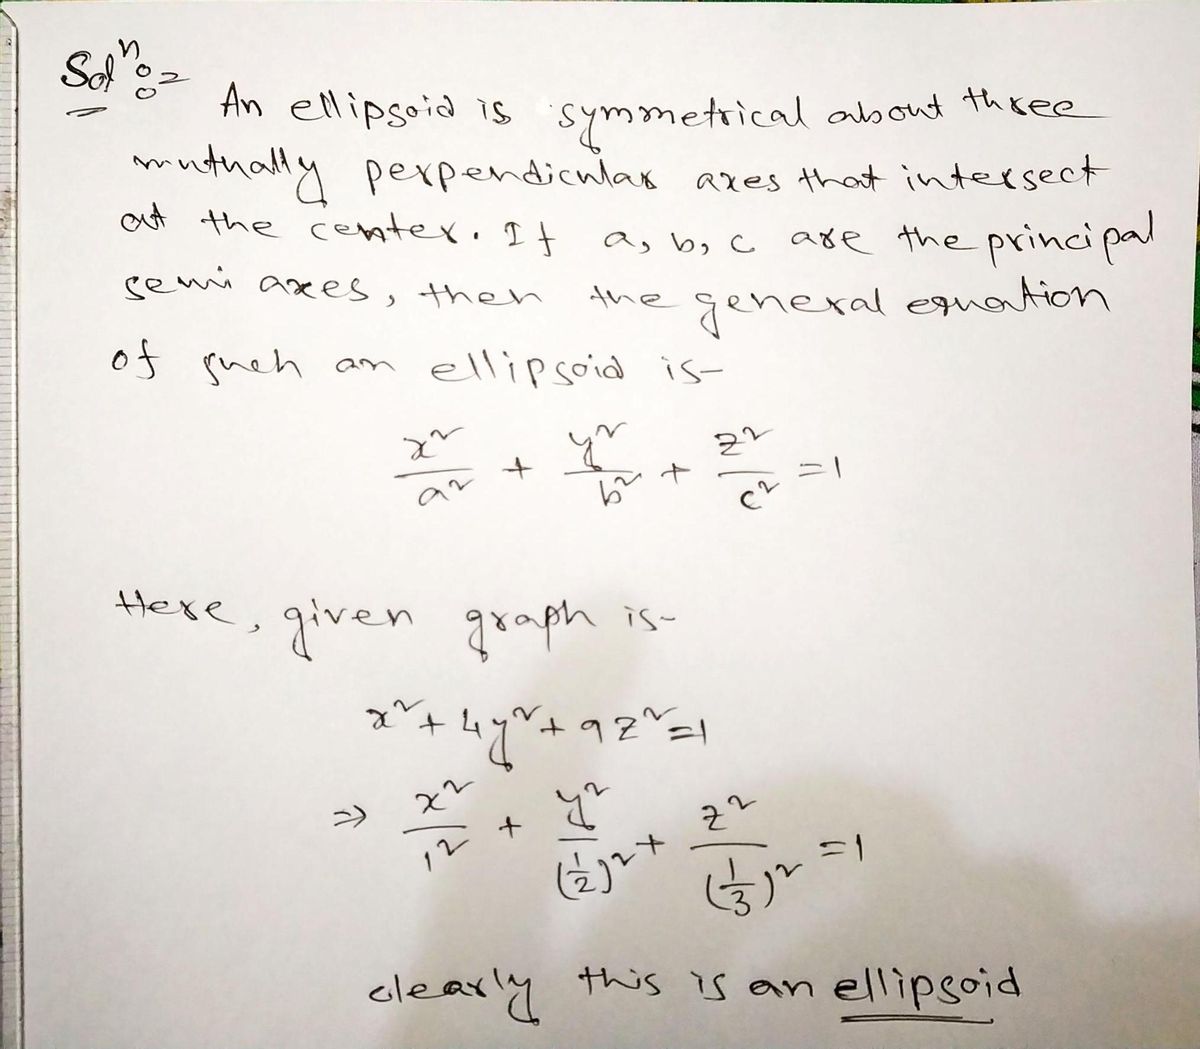 Solⁿ :-
An ellipsoid is symmetrical about three
mutually perpendicular axes that intersect
at the center. If a, b, c are the principal
semi axes, then the general equation
of such an ellipsoid is-
x²/a² + y²/b² + z²/c² = 1
Here, given graph is-
x² + 4y² + 9z² = 1
⇒ x²/1² + y²/(1/2)² + z²/(1/3)² = 1
clearly this is an ellipsoid